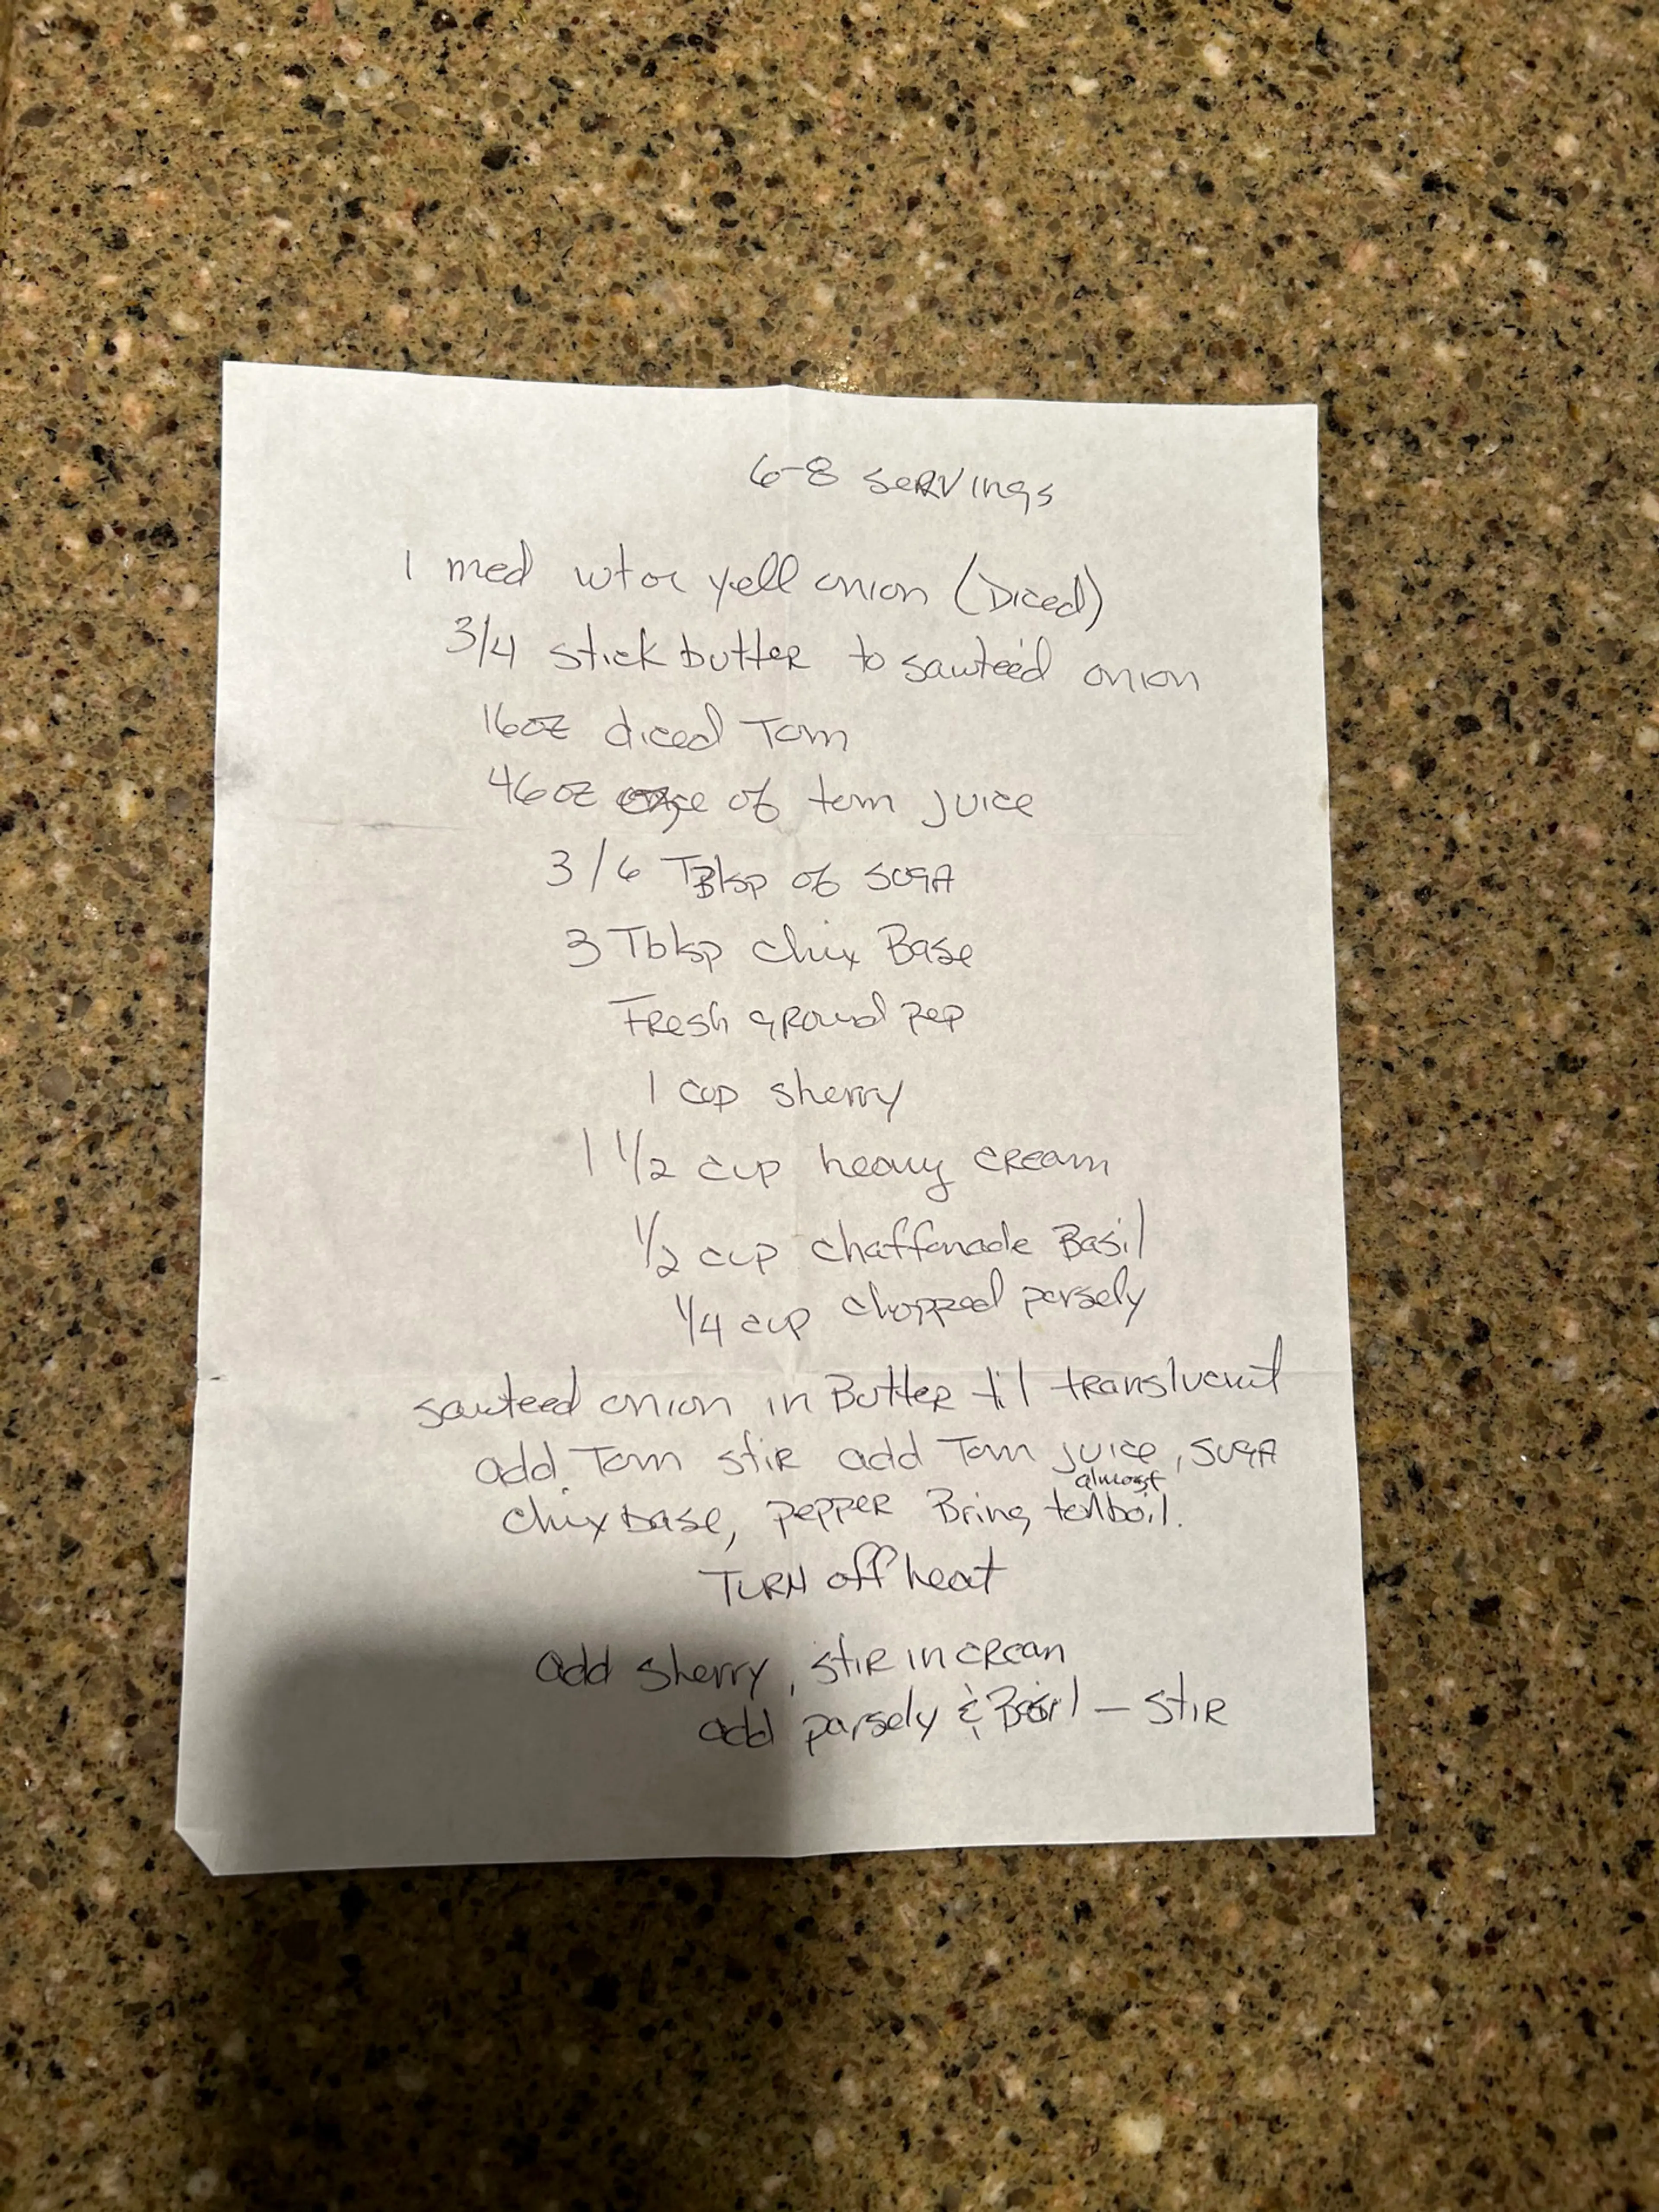 6-8 servings
1 med wt or yell onion (Diced)
3/4 stick butter to sauteéd onion
16oz diced Tom
46oz of tom juice
3/6 TBlsp of suga
3 Tblsp chix Base
Fresh ground pep
1 cup sherry
1 1/2 cup heavy cream
1/2 cup chaffonade Basil
1/4 cup chopped parsely
sauteed onion in Butter til translucent
add Tom stir add Tom juice, suga
chix base, pepper Bring to almost boil.
Turn off heat
add sherry, stir in crean
add parsely & Basil - stir